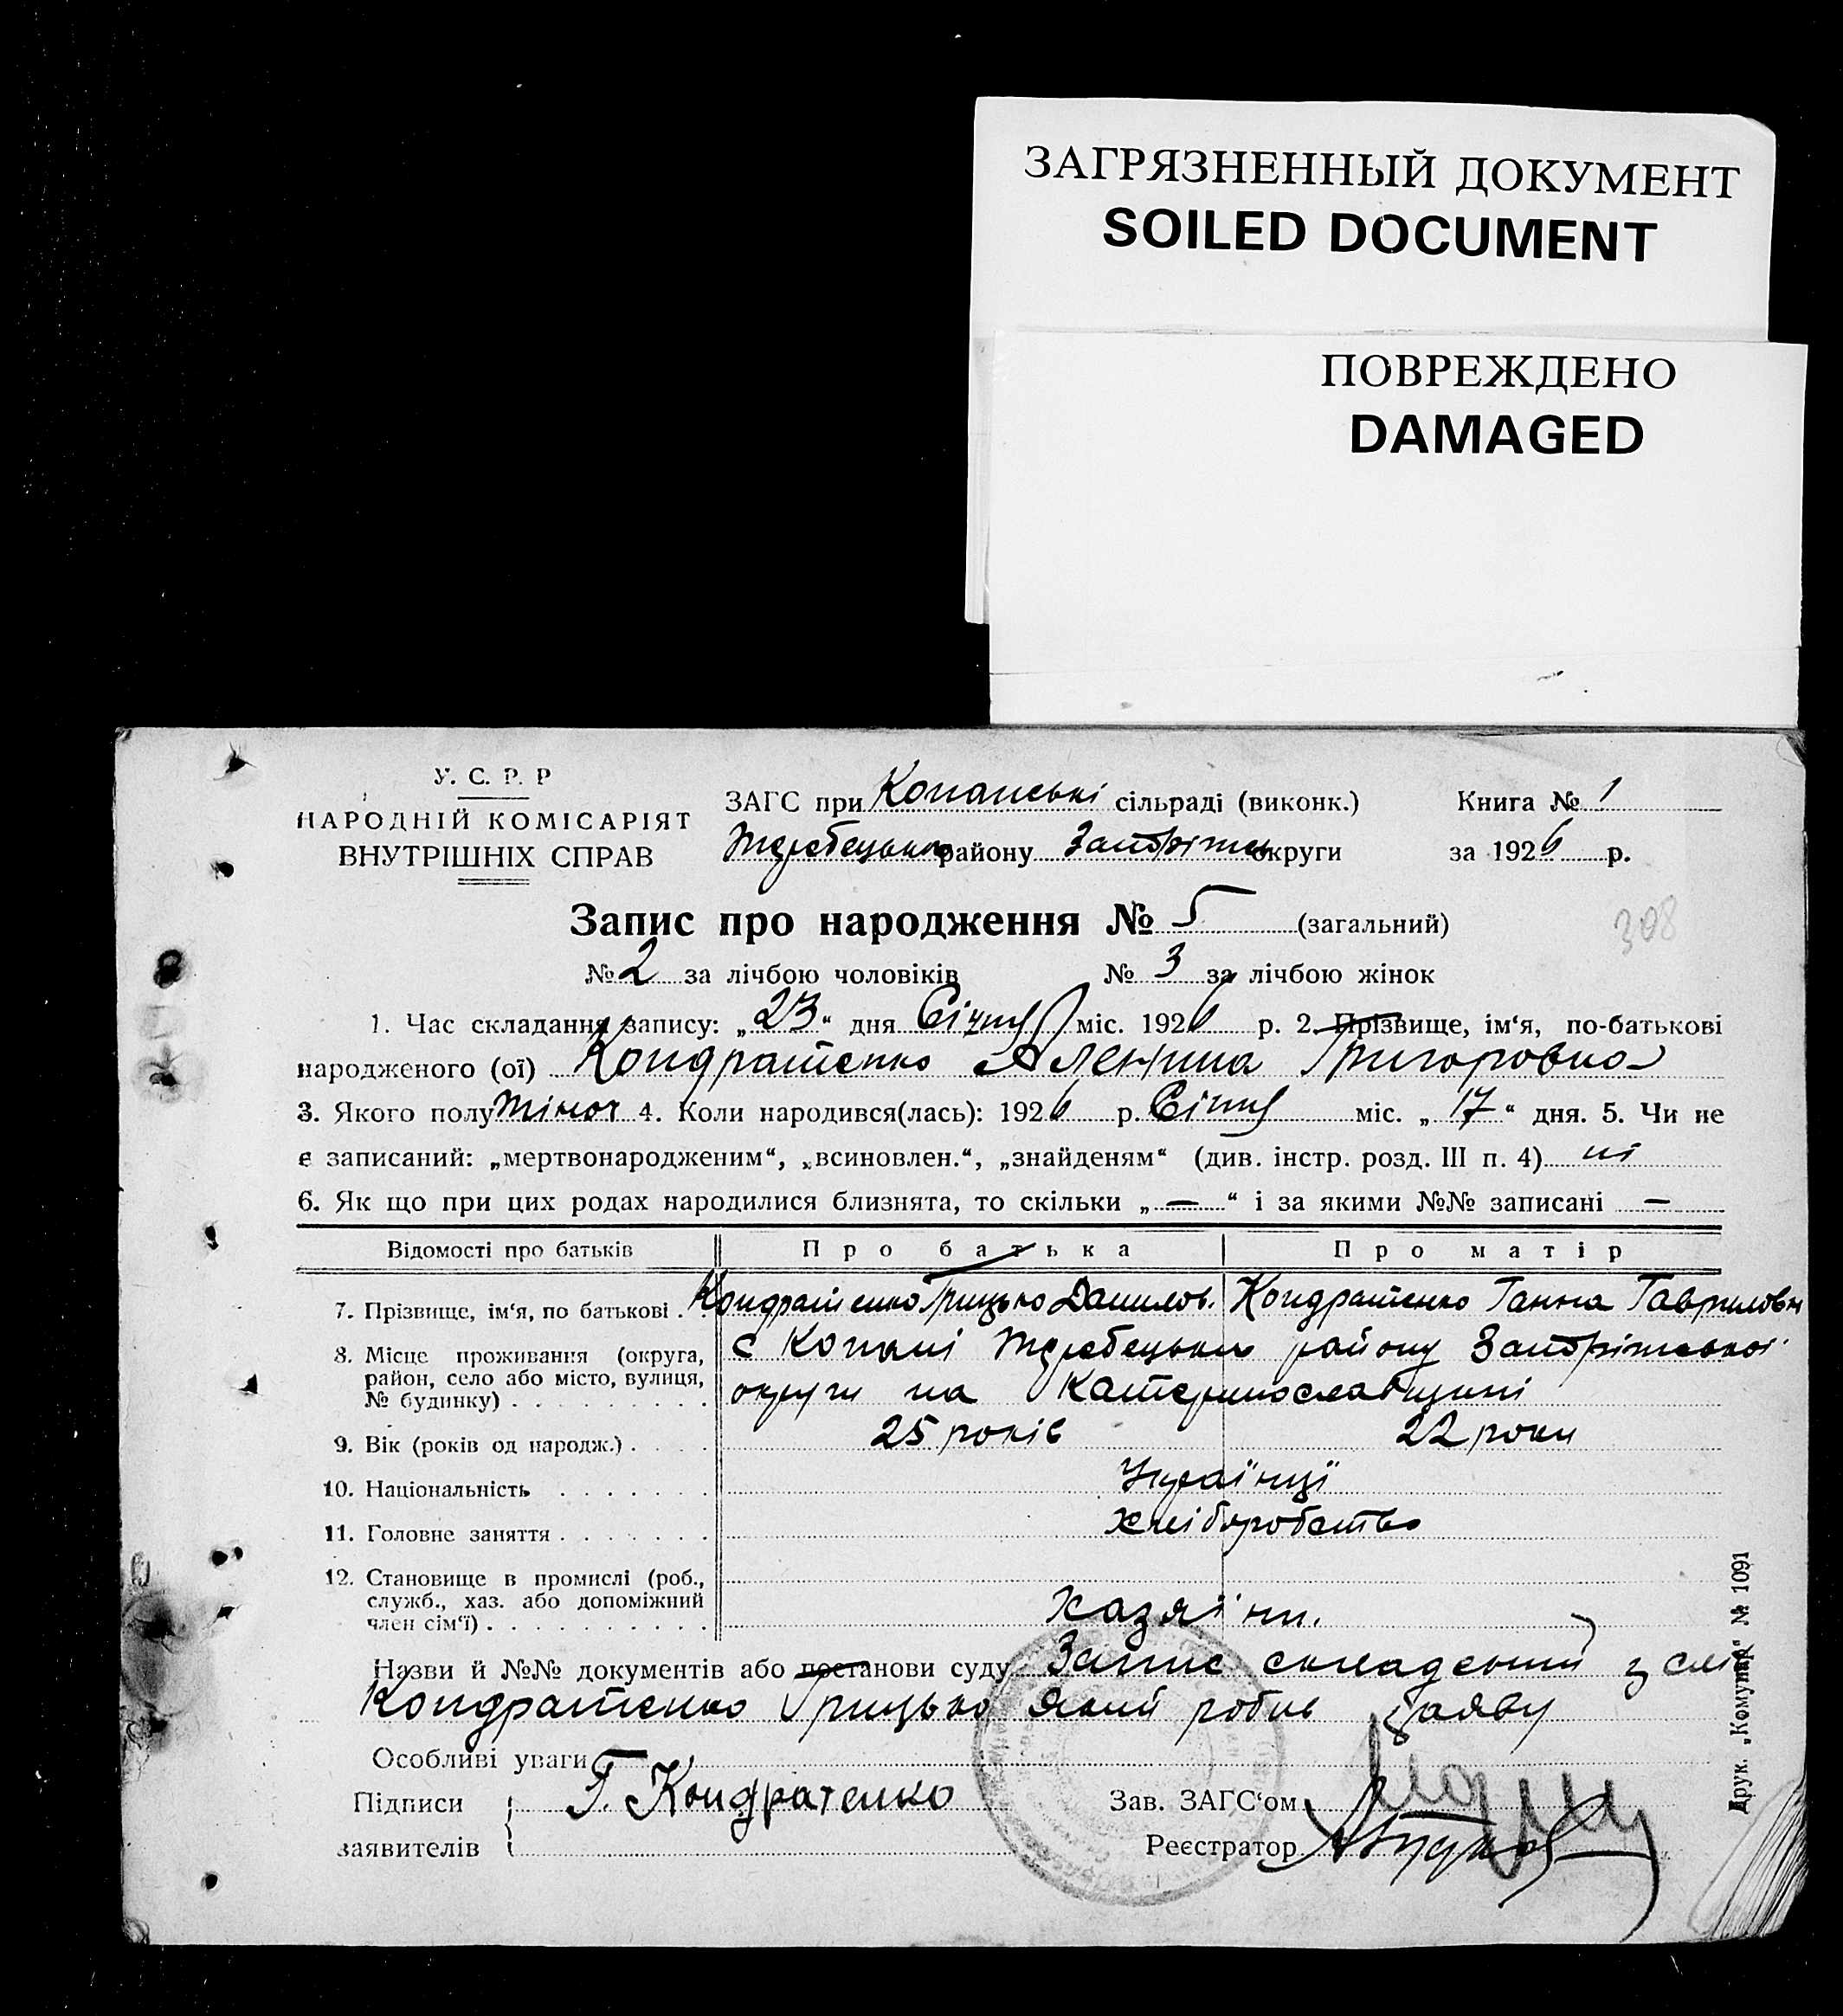 ЗАГРЯЗНЕННЫЙ ДОКУМЕНТ
SOILED DOCUMENT
ПОВРЕЖДЕНО
DAMAGED
У. С. Р. Р
НАРОДНІЙ КОМІСАРІЯТ
ВНУТРІШНІХ СПРАВ
ЗАГС при Копанські сільраді (виконк.) Книга № 1
району округи за 1926 р.
Запис про народження № 5 (загальний)
308
№ 2 за лічбою чоловіків № 3 за лічбою жінок
1. Час складання запису: „23“ дня Січня міс. 1926 р. 2. Прізвище, ім‘я, по-батькові
народженого (ої) Кондратенко Григоровна
3. Якого полу жіноч 4. Коли народився(лась): 1926 р. Січня міс. „17“ дня. 5. Чи не
є записаний: „мертвонародженим“, „всиновлен.“, „знайденям“ (див. інстр. розд. III п. 4) ні
6. Як що при цих родах народилися близнята, то скільки „—“ і за якими №№ записані —
Відомості про батьків Про батька Про матір
7. Прізвище, ім‘я, по батькові . . Кондратенко Грицько Данилов. Кондратенко Ганна Гавриловн
8. Місце проживання (округа,
район, село або місто, вулиця,
№ будинку) . . . . . . . . .
с Копані району
округи на Катеринославщині
9. Вік (років од народж.) . . . . 25 років 22 роки
10. Національність . . . . . . . Українці
11. Головне заняття . . . . . . . хліборобство
12. Становище в промислі (роб.,
служб., хаз. або допоміжний
член сім‘ї) . . . . . . . . . . хазяїни.
Назви й №№ документів або постанови суду Запис складений з слів
Кондратенко Грицько який робив заяву
Особливі уваги
Підписи
заявителів
Г. Кондратенко
Зав. ЗАГС‘ом
Реєстратор
Друк. „Комунар“ № 1091